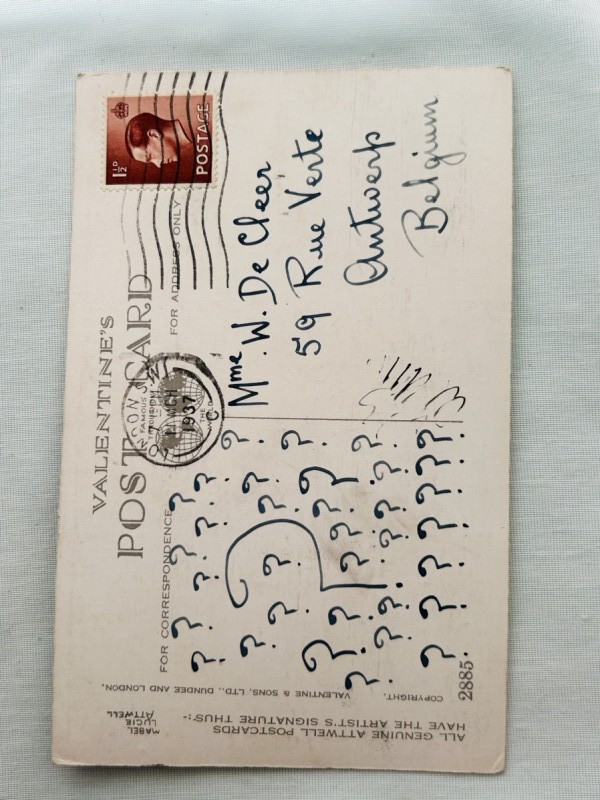 VALENTINE'S
POST CARD
FOR CORRESPONDENCE
FOR ADDRESS ONLY
ALL GENUINE ATTWELL POSTCARDS
HAVE THE ARTIST'S SIGNATURE THUS:-
MABEL
LUCIE
ATTWELL
COPYRIGHT. VALENTINE & SONS, LTD., DUNDEE AND LONDON.
2885.
LONDON
FAMOUS
THE
WORLD
1937
1½D
POSTAGE
? ? ? ?
? ? ? ?
? ? ? ?
? ? ? ?
? ? ? ?
? ? ? ? ?
? ? ? ? ?
? ? ? ? ? ? ?
Mme W. De Cleer
59 Rue Verte
Antwerp
Belgium